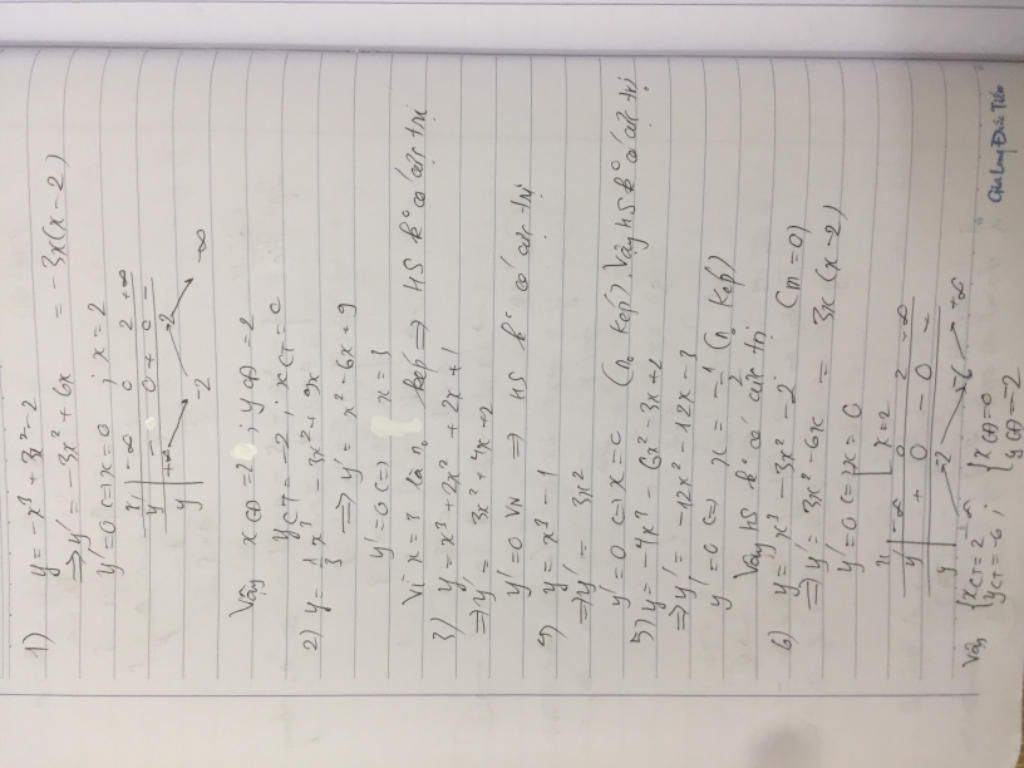 1) y = -x³ + 3x² - 2
=> y' = -3x² + 6x = -3x(x-2)
y' = 0 <=> x = 0 ; x = 2
x -∞ 0 2 +∞
y' - 0 + 0 -
y +∞ -2 2 -∞
Vậy x CĐ = 2 ; y CĐ = 2
y CT = -2 ; x CT = 0
2) y = 1/3 x³ - 3x² + 9x
=> y' = x² - 6x + 9
y' = 0 <=> x = 3
Vì x = 3 là n₀ kép => HS k° có cực trị
3) y = x³ + 2x² + 2x + 1
=> y' = 3x² + 4x + 2
y' = 0 VN => HS k° có cực trị
4) y = x³ - 1
=> y' = 3x²
y' = 0 <=> x = 0 (n₀ kép). Vậy HS k° có cực trị
5) y = -4x³ - 6x² - 3x + 2
=> y' = -12x² - 12x - 3
y' = 0 <=> x = -1 (n₀ kép)
Vậy HS k° có cực trị
6) y = x³ - 3x² - 2 (m = 0)
=> y' = 3x² - 6x = 3x(x-2)
y' = 0 <=> x = 0
x = 2
x -∞ 0 2 +∞
y' + 0 - 0 +
y -∞ -2 -6 +∞
Vậy { x CT = 2 ; { x CĐ = 0
y CT = -6 ; y CĐ = -2